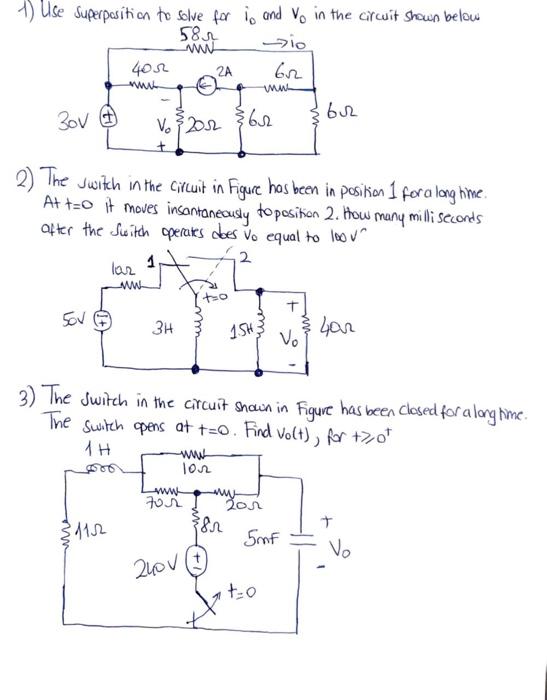 1) Use superposition to solve for i₀ and V₀ in the circuit shown below
58Ω
→i₀
40Ω
2A
6Ω
30V
V₀
-
+
20Ω
6Ω
6Ω
2) The switch in the circuit in Figure has been in position 1 for a long time.
At t=0 it moves insantaneously to position 2. How many milli seconds
after the switch operates does V₀ equal to 100 V
1
2
10Ω
t=0
50V
3H
1.5H
+
V₀
-
40Ω
3) The switch in the circuit shown in Figure has been closed for a long time.
The switch opens at t=0. Find V₀(t), for t≥0⁺
1H
10Ω
70Ω
20Ω
11Ω
8Ω
5mF
+
V₀
-
240V
t=0